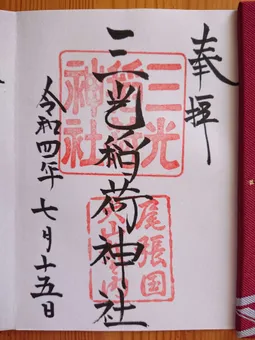 奉拝
三光稲荷神社
令和四年七月十五日
三光稲荷神社
尾張国犬山城内